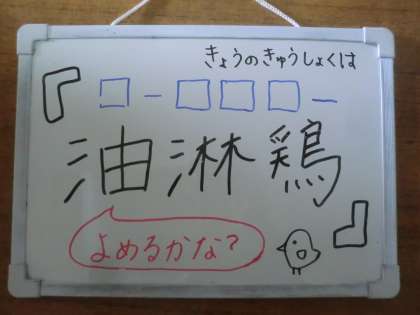 きょうのきゅうしょくは
□ー□□□ー
油淋鶏
よめるかな?